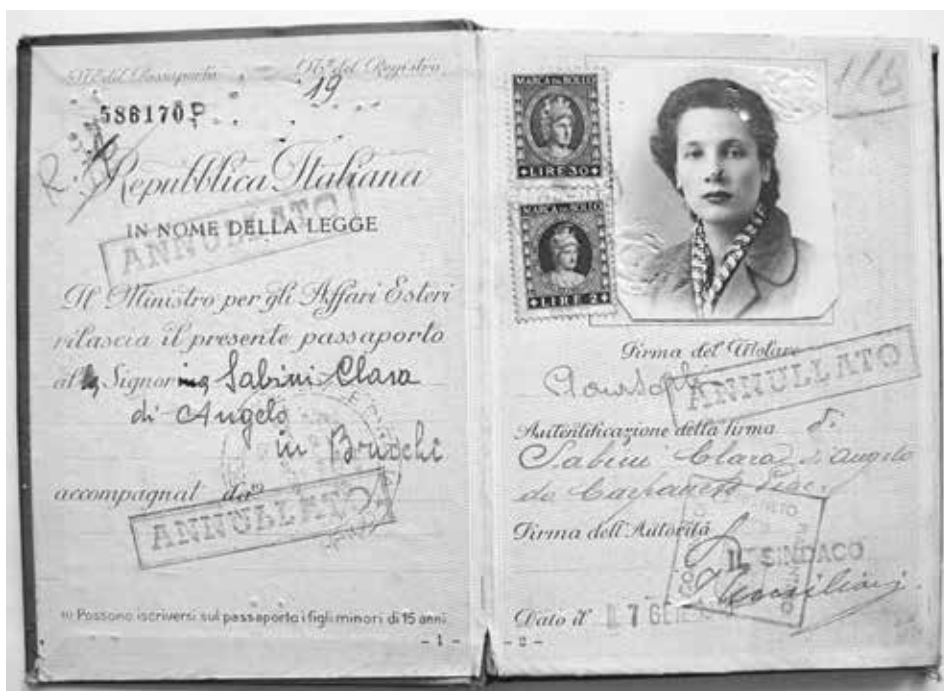 N.º del Passaporto N.º del Registro
19
586170P
Repubblica Italiana
IN NOME DELLA LEGGE
ANNULLATO
Il Ministro per gli Affari Esteri
rilascia il presente passaporto
al la Signorina Sabini Clara
di Angelo
in Bruschi
accompagnat da
ANNULLATO
(1) Possono iscriversi sul passaporto i figli minori di 15 anni
- 1 -
MARCA DA BOLLO
LIRE 30
MARCA DA BOLLO
LIRE 2
Firma del Titolare
ANNULLATO
Autentificazione della firma di
Sabini Clara di Angelo
da Carpaneto Piac.
Firma dell'Autorità
IL SINDACO
Dato il 7 GE
- 2 -